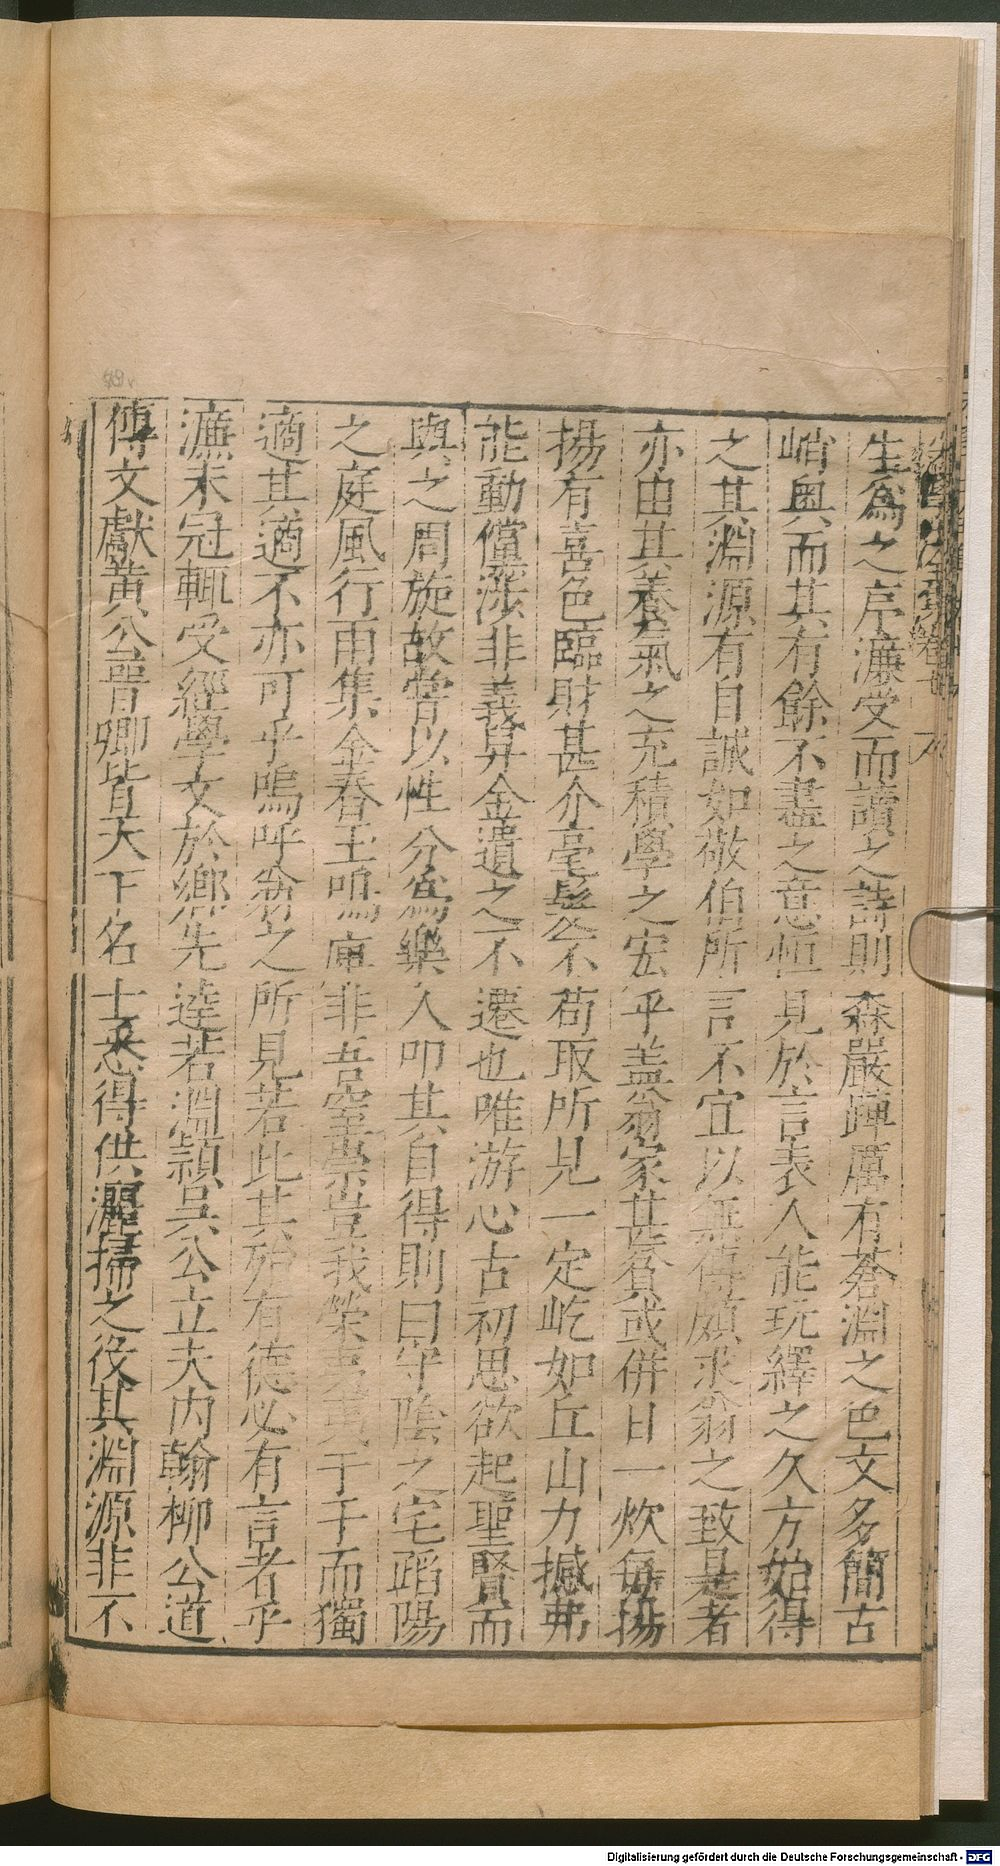 生爲之序濂受而讀之詩則森嚴踔厲有蒼淵之色文多簡古
峭奧而其有餘不盡之意恒見於言表人能玩繹之久方始得
之其淵源有自誠如敬伯所言不宜以無傳頗求翁之致是者
亦由其養氣之充積學之宏乎蓋翁家甚貧或併日一炊每揚
揚有喜色臨財甚介毫髮不苟取所見一定屹如丘山力撼弗
能動儻涉非義舁金遺之不遷也唯游心古初思欲起聖賢而
與之周旋故嘗以性分爲樂人叩其自得則曰守陰之宅蹈陽
之庭風行雨集金舂玉鳴庫非吾窒崇豈我榮于于而獨
適其適不亦可乎嗚呼翁之所見若此其殆有德必有言者乎
濂未冠輒受經學文於鄉先達若淵穎吳公立夫内翰柳公道
傳文獻黄公晉卿皆天下名士悉得供灑掃之役其淵源非不
Digitalisierung gefördert durch die Deutsche Forschungsgemeinschaft - DFG